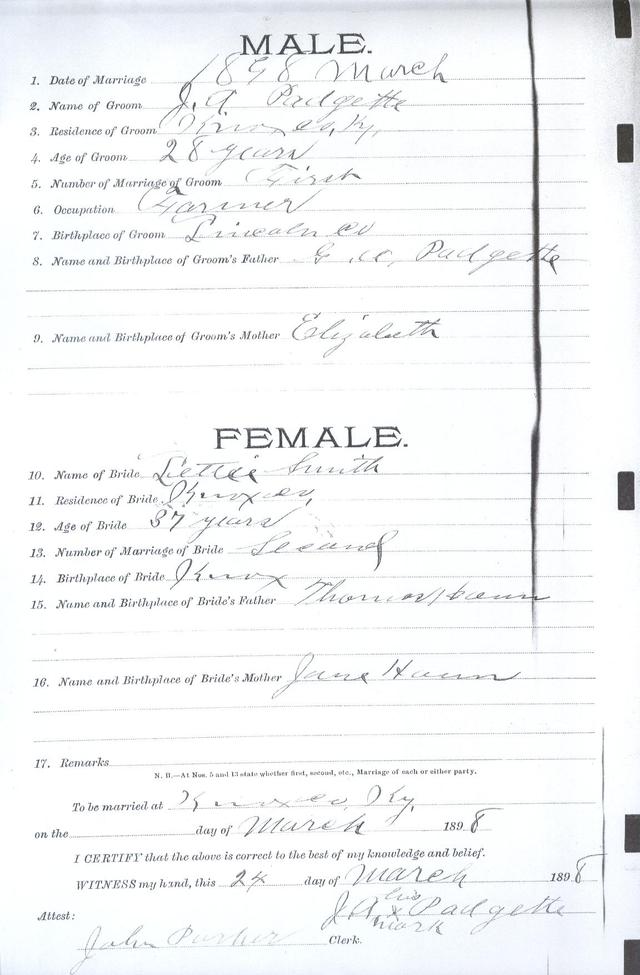 MALE.
1. Date of Marriage 1898 March
2. Name of Groom J. A Padgette
3. Residence of Groom Knox co, Ky,
4. Age of Groom 28 years
5. Number of Marriage of Groom First
6. Occupation Farmer
7. Birthplace of Groom Lincoln co
8. Name and Birthplace of Groom's Father G. W. Padgette
9. Name and Birthplace of Groom's Mother Elizabeth
FEMALE.
10. Name of Bride Lettie Smith
11. Residence of Bride Knox co,
12. Age of Bride 37 years
13. Number of Marriage of Bride Second
14. Birthplace of Bride Knox
15. Name and Birthplace of Bride's Father Thomas
16. Name and Birthplace of Bride's Mother Jane Haun
17. Remarks
N. B.—At Nos. 5 and 13 state whether first, second, etc., Marriage of each or either party.
To be married at Knox co, Ky,
on the day of March 1898
I CERTIFY that the above is correct to the best of my knowledge and belief.
WITNESS my hand, this 24 day of March 1898
his
J. A. x Padgette
mark
Attest:
John Parker Clerk.